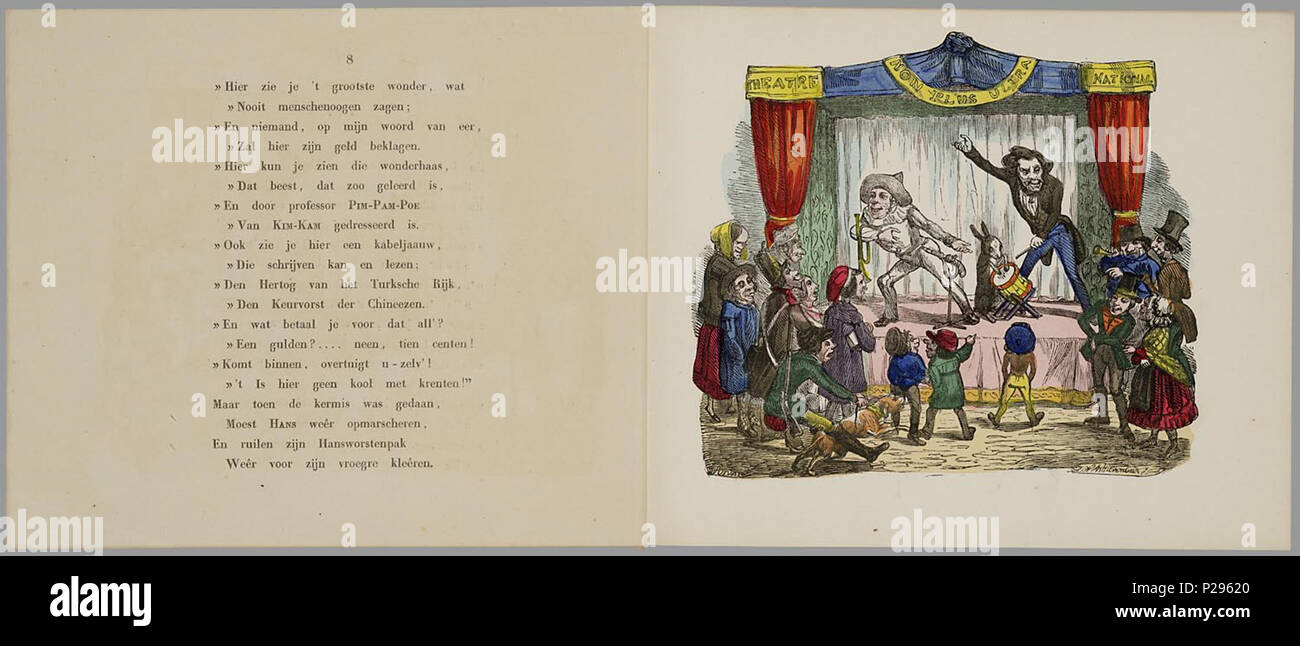 8
» Hier zie je 't grootste wonder, wat
» Nooit menschenoogen zagen;
» En niemand, op mijn woord van eer,
» Zal hier zijn geld beklagen.
» Hier kun je zien die wonderhaas,
» Dat beest, dat zoo geleerd is,
» En door professor PIM-PAM-POE
» Van KIM-KAM gedresseerd is.
» Ook zie je hier een kabeljaauw,
» Die schrijven kan en lezen;
» Den Hertog van het Turksche Rijk,
» Den Keurvorst der Chineezen.
» En wat betaal je voor dat all'?
» Een gulden?.... neen, tien centen!
» Komt binnen, overtuigt u-zelv'!
» 't Is hier geen kool met krenten!"
Maar toen de kermis was gedaan,
Moest HANS weêr opmarscheren,
En ruilen zijn Hansworstenpak
Weêr voor zijn vroegre kleêren.
THEATRE
NON PLUS ULTRA
NATIONAL
alamy
alamy
alamy
Image ID: P29620
www.alamy.com